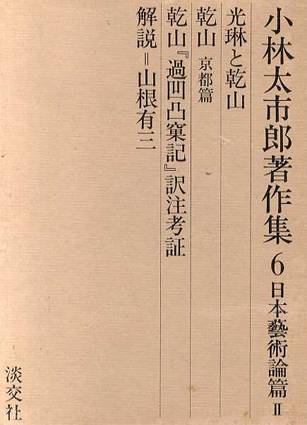 小林太市郎著作集 6 日本藝術論篇 II
光琳と乾山
乾山 京都篇
乾山『過凹凸窠記』訳注考証
解説＝山根有三
淡交社